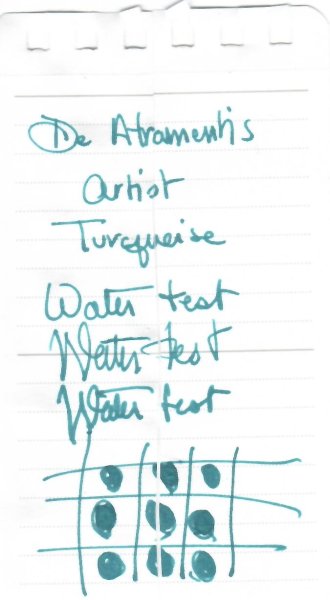 De Atramentis
Artist
Turcqueise
Water test
Water test
Water test